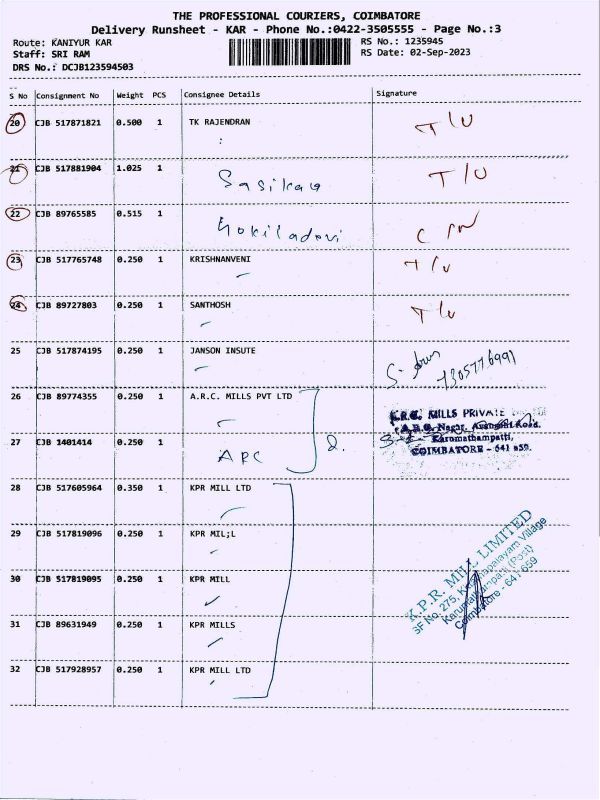 THE PROFESSIONAL COURIERS, COIMBATORE
Delivery Runsheet - KAR - Phone No.:0422-3505555 - Page No.:3
Route: KANIYUR KAR RS No.: 1235945
Staff: SRI RAM RS Date: 02-Sep-2023
DRS No.: DCJB123594503
S No Consignment No Weight PCS Consignee Details Signature
20 CJB 517871821 0.500 1 TK RAJENDRAN T/U
:
21 CJB 517881904 1.025 1 Sasikau T/U
22 CJB 89765585 0.515 1 Gokiladevi
23 CJB 517765748 0.250 1 KRISHNANVENI T/U
24 CJB 89727803 0.250 1 SANTHOSH T/U
25 CJB 517874195 0.250 1 JANSON INSUTE 7305776991
26 CJB 89774355 0.250 1 A.R.C. MILLS PVT LTD
A.R.C. MILLS PRIVATE
A.R.C. Nagar, Avanashi Road,
27 CJB 1401414 0.250 1 ARC 2.
Karumathampatti,
COIMBATORE - 641 659.
28 CJB 517605964 0.350 1 KPR MILL LTD
29 CJB 517819096 0.250 1 KPR MIL;L
30 CJB 517819095 0.250 1 KPR MILL
31 CJB 89631949 0.250 1 KPR MILLS
32 CJB 517928957 0.250 1 KPR MILL LTD
K.P.R. MILL LIMITED
SF No. 275, Village
Karumathampatti (Post)
Coimbatore - 641 659